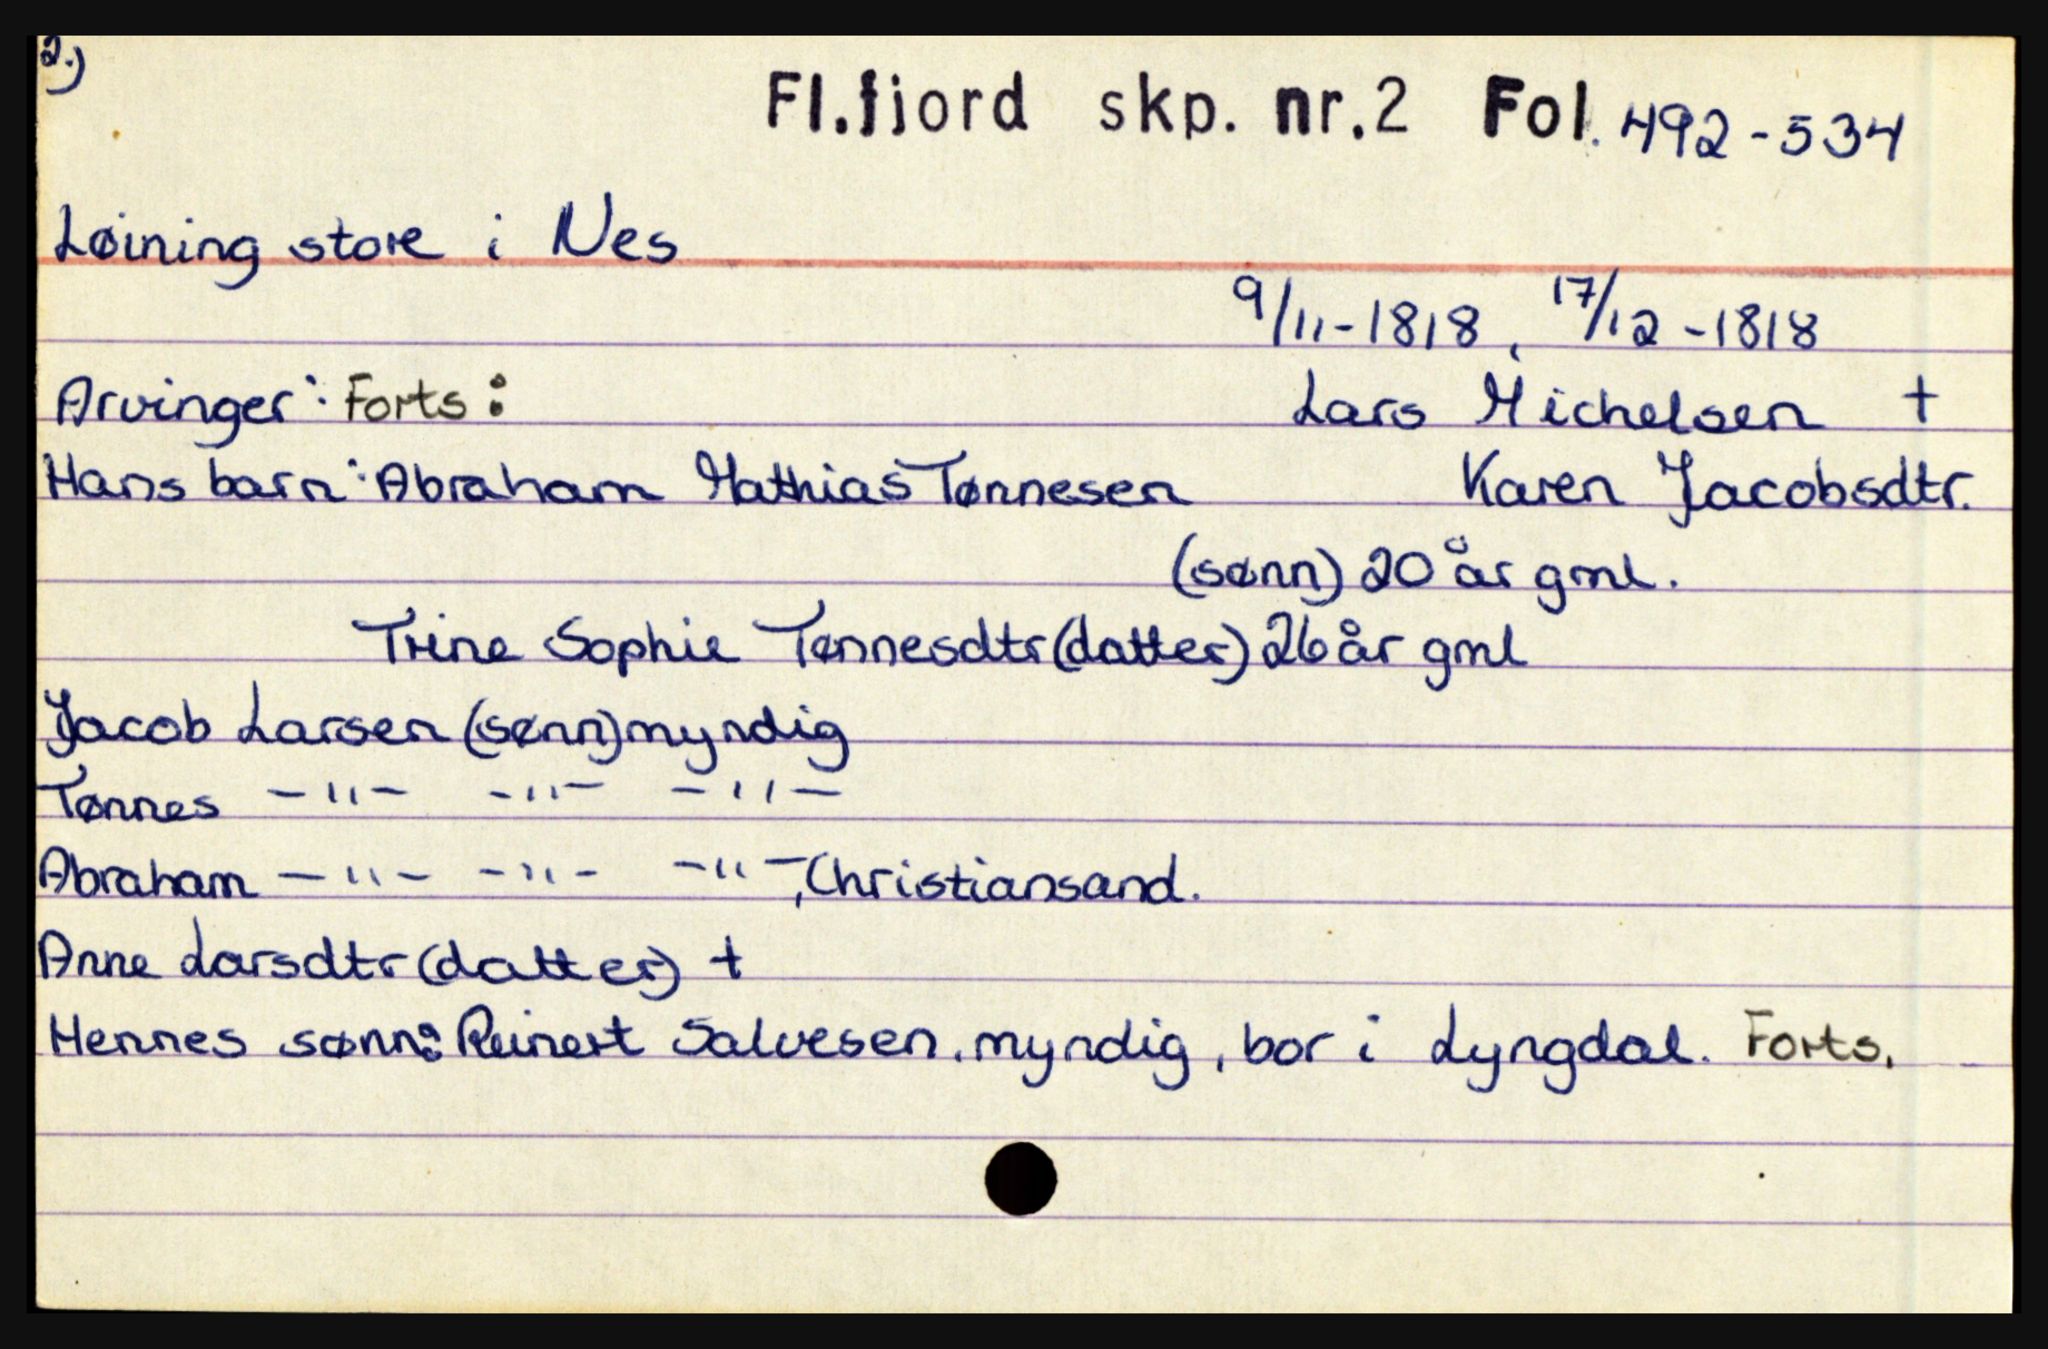 2.)
Fl.fjord skp. nr.2 Fol. 492-534
Løining store i Nes
9/11-1818, 17/12-1818
Arvinger: Forts: Lars Michelsen †
Hans barn: Abraham Mathias Tønnesen Karen Jacobsdtr.
(sønn) 20 år gml.
Trine Sophie Tønnesdtr (datter) 26 år gml
Jacob Larsen (sønn) myndig
Tønnes -"- -"- -"-
Abraham -"- -"- -"-, Christiansand.
Anne Larsdtr (datter) †
Hennes sønn: Reinert Salvesen, myndig, bor i Lyngdal. Forts.